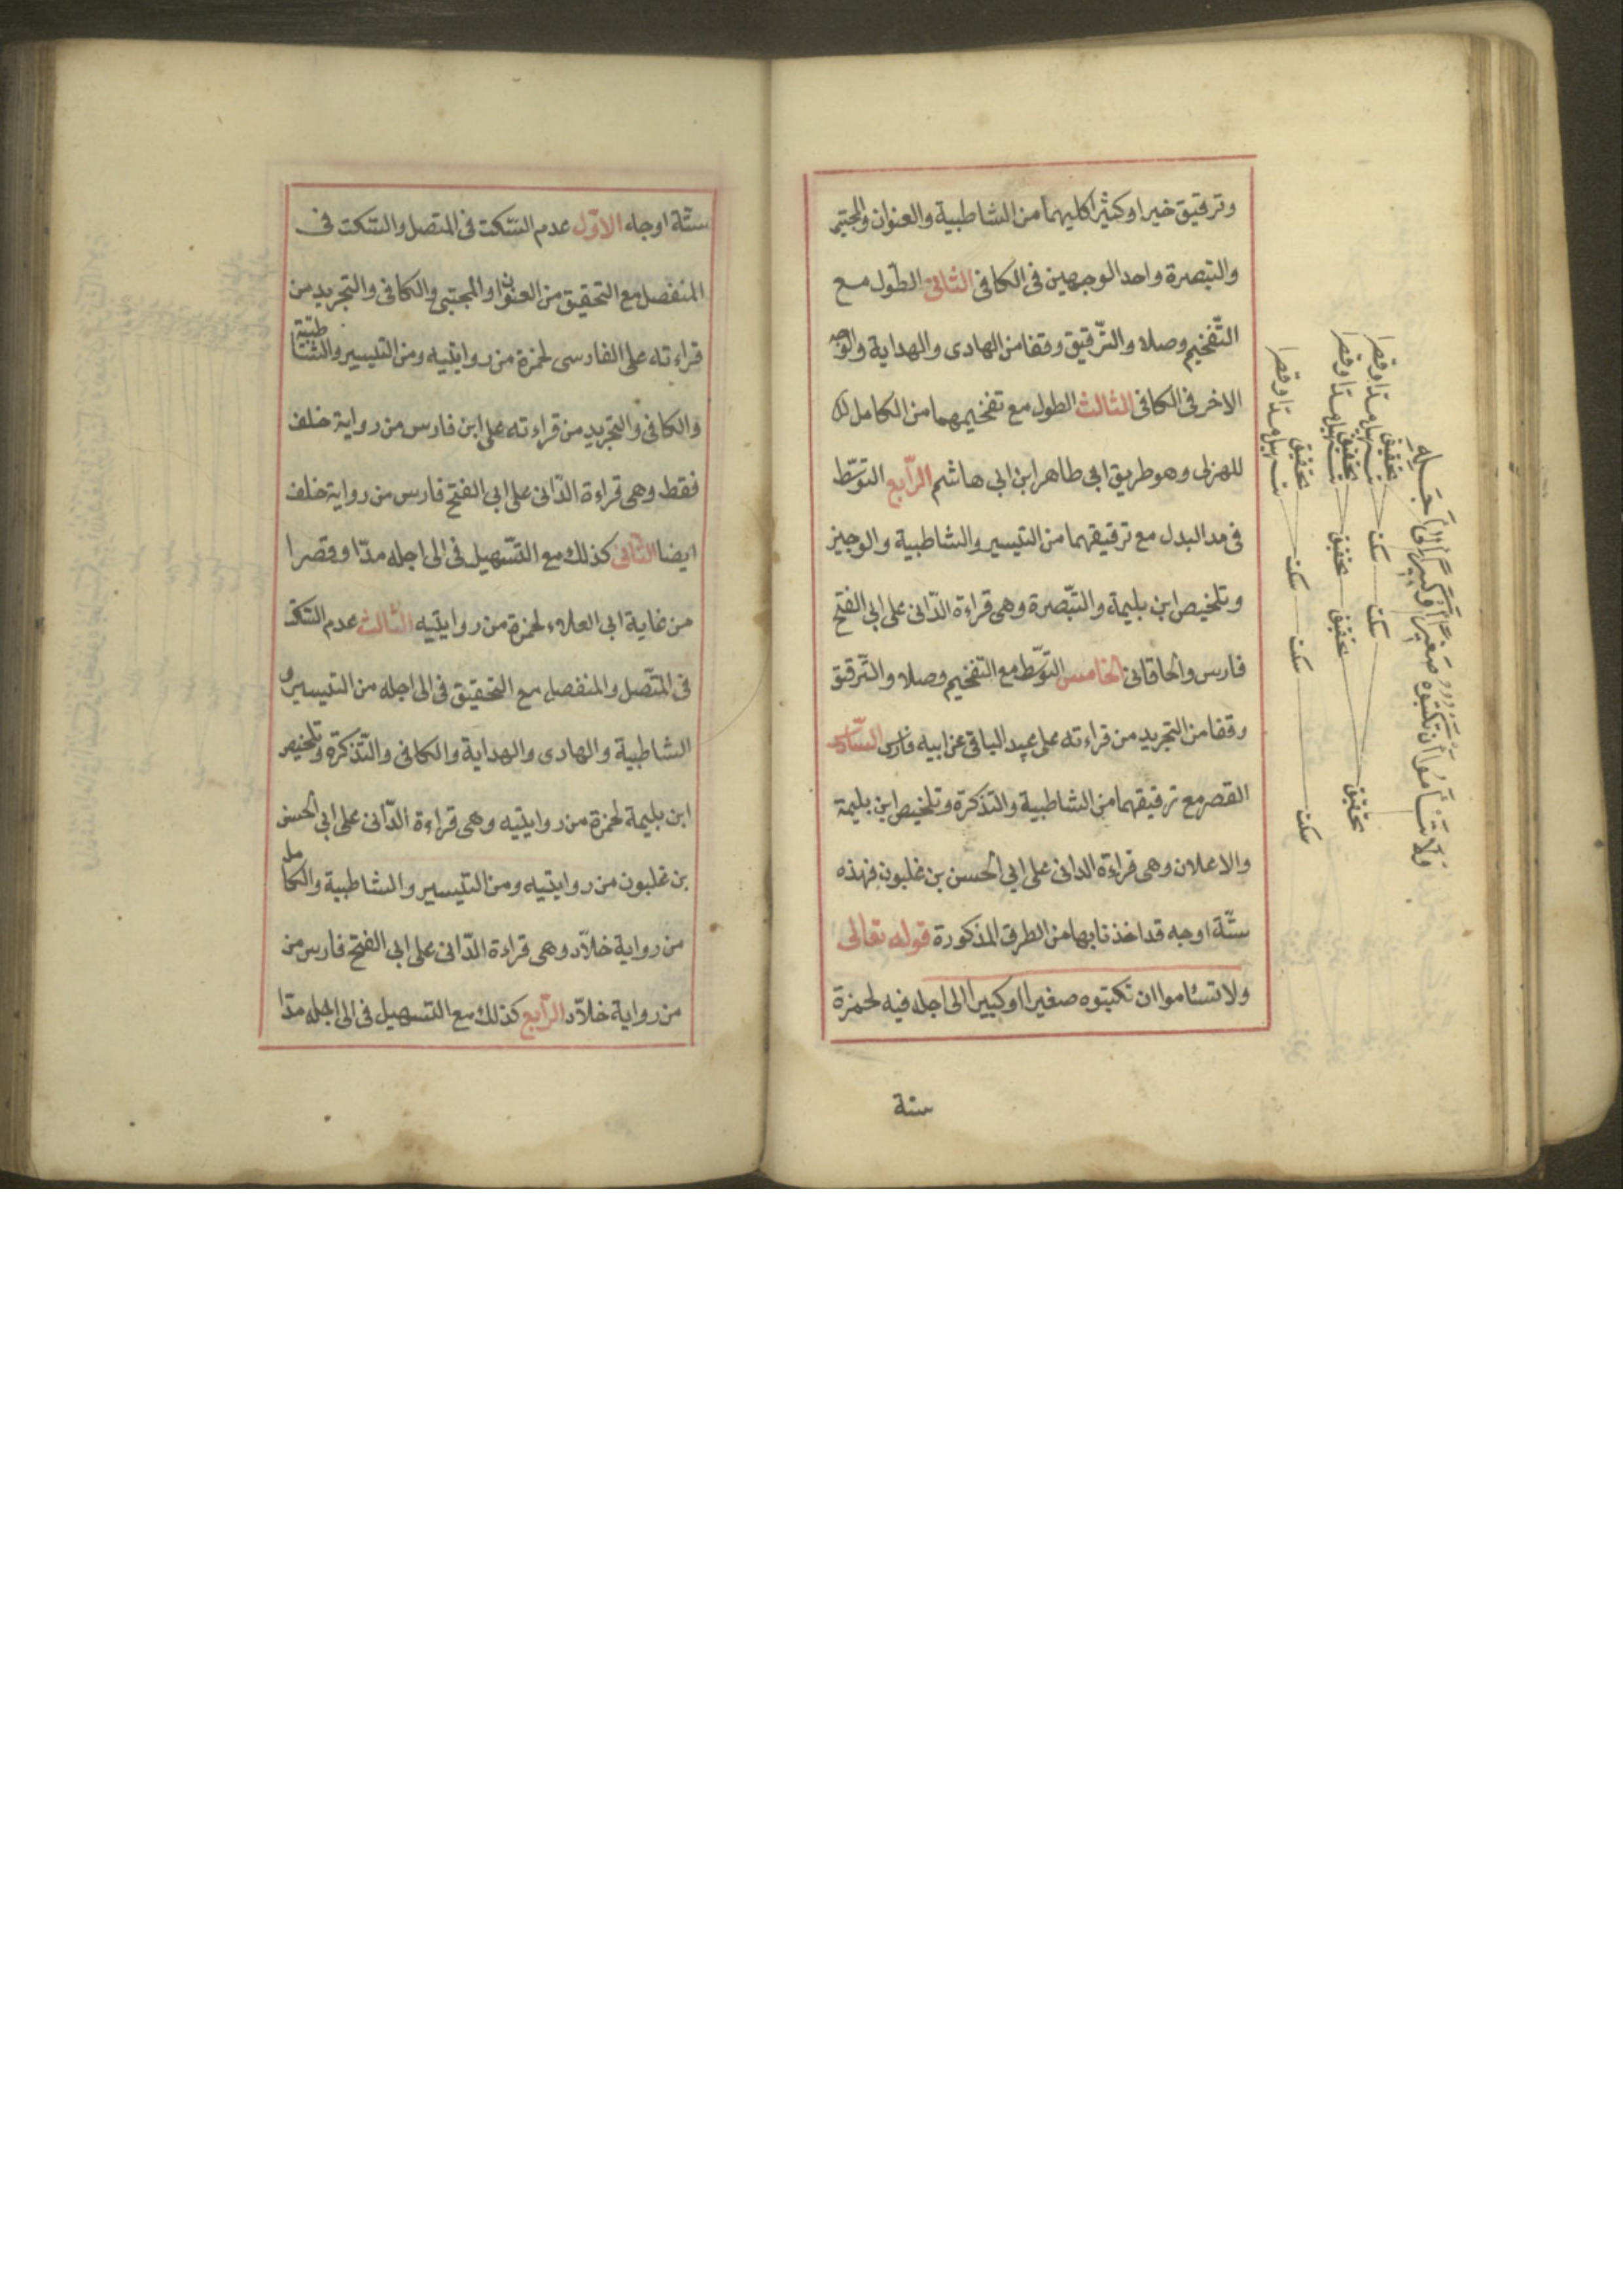 وترقيق خيرا وكثيرا كليهما من الشاطبية والعنوان والمجتبى
والتبصرة واحد الوجهين فى الكافى الثانى الطول مع
التفخيم وصلا والترقيق وقفا من الهادى والهداية والوجه
الاخر فى الكافى الثالث الطول مع تفخيمهما من الكامل
للهزلى وهو طريق ابى طاهر ابن ابى هاشم الرّابع التوسّط
فى مد البدل مع ترقيقهما من التيسير والشاطبية والوجيز
وتلخيص ابن بليمة والتبّصرة وهى قراءة الدّانى على ابى الفتح
فارس والخاقانى الخامس التوسّط مع التفخيم وصلا والتّرقيق
وقفا من التجريد من قراءته على عبد الباقى عن ابيه فارس السّادس
القصر مع ترقيقهما من الشاطبية والتذكرة وتلخيص ابن بليمة
والاعلان وهى قراءة الدانى على ابى الحسن بن غلبون فهذه
ستّة اوجه قد اخذنا بها من الطرق المذكورة قوله تعالى
ولا تسئاموا ان تكتبوه صغيرا او كبيرا الى اجله فيه لحمزة
ستة
وَلَا تَسْـَٔامُوٓا أَن تَكْتُبُوهُ صَغِيرًا أَوْ كَبِيرًا إِلَىٰٓ أَجَلِهِ
تحقيق
تسهيل مدّا وقصرا
سكت
سكت
تحقيق
تسهيل مدّا وقصرا
تحقيق
تحقيق
تحقيق
تحقيق
تسهيل مدّا وقصرا
سكت
سكت
سكت
ستّة اوجه الاوّل عدم السّكت فى المتصل والسّكت فى
المنفصل مع التحقيق من العنوان والمجتبى والكافى والتجريد من
قراءته على الفارسى لحمزة من روايتيه ومن التيسير والشاطبيّة
والكافى والتجريد من قراءته على ابن فارس من رواية خلف
فقط وهى قراءة الدّانى على ابى الفتح فارس من رواية خلف
ايضا الثّانى كذلك مع التسّهيل فى الى اجله مدّا وقصرا
من غاية ابى العلاء لحمزة من روايتيه الثّالث عدم السّكت
فى المتّصل والمنفصل مع التحقيق فى الى اجله من التيسير و
الشاطبية والهادى والهداية والكافى والتّذكرة وتلخيص
ابن بليمة لحمزة من روايتيه وهى قراءة الدّانى على ابى الحسن
بن غلبون من روايتيه ومن التيسير والشاطبية والكامل
من رواية خلاّد وهى قراءة الدّانى على ابى الفتح فارس من
من رواية خلاّد الرّابع كذلك مع التسهيل فى الى اجله مدّا